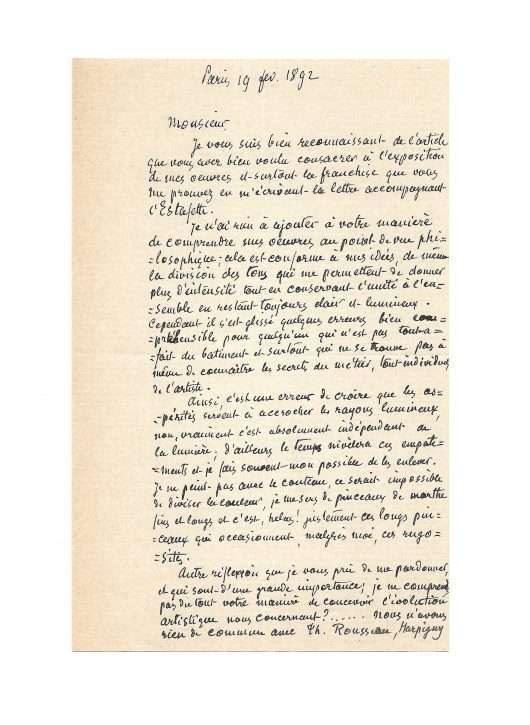 Paris 19 fev. 1892
Monsieur
Je vous suis bien reconnaissant de l'article
que vous avez bien voulu consacrer à l'exposition
de mes oeuvres et surtout la franchise que vous
me prouvez en m'écrivant la lettre accompagnant
l'Estafette.
Je n'ai rien à ajouter à votre manière
de comprendre mes oeuvres au point de vue phi-
-losophique; cela est conforme à mes idées, de même
la division des tons qui me permettent de donner
plus d'intensité tout en conservant l'unité à l'en-
-semble en restant toujours clair et lumineux.
Cependant il s'est glissé quelques erreurs bien com-
-préhensible pour quelqu'un qui n'est pas tout-à-
-fait du batiment et surtout qui ne se trouve pas à
même de connaître les secrets du métier, tout individuels
de l'artiste.
Ainsi, c'est une erreur de croire que les as-
-pérités servent à accrocher les rayons lumineux,
non, vraiment c'est absolument indépendant de
la lumière; d'ailleurs le temps nivelera ces empate-
-ments et je fais souvent mon possible de les enlever.
Je ne peint pas avec le couteau, ce serait impossible
de diviser la couleur, je me sers de pinceaux de marthe
fins et longs et c'est, helas! justement ces longs pin-
-ceaux qui occasionnent, malgrés moi, ces rugo-
-sités.
Autre réflexion que je vous prie de me pardonner
et qui sont d'une grande importance; je ne comprend
pas du tout votre manière de concevoir l'évolution
artistique nous concernant?...... nous n'avons
rien de commun avec Th. Rousseau, Harpigny